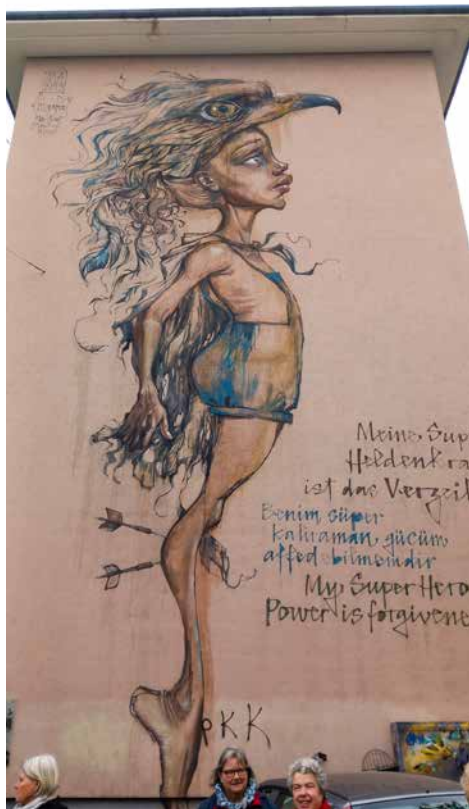 Meine Sup
Heldenkra
ist das Verzeih
Benim süper
kahraman gücüm
affedebilmemdir
My Super Hero
Power is forgivene
PKK